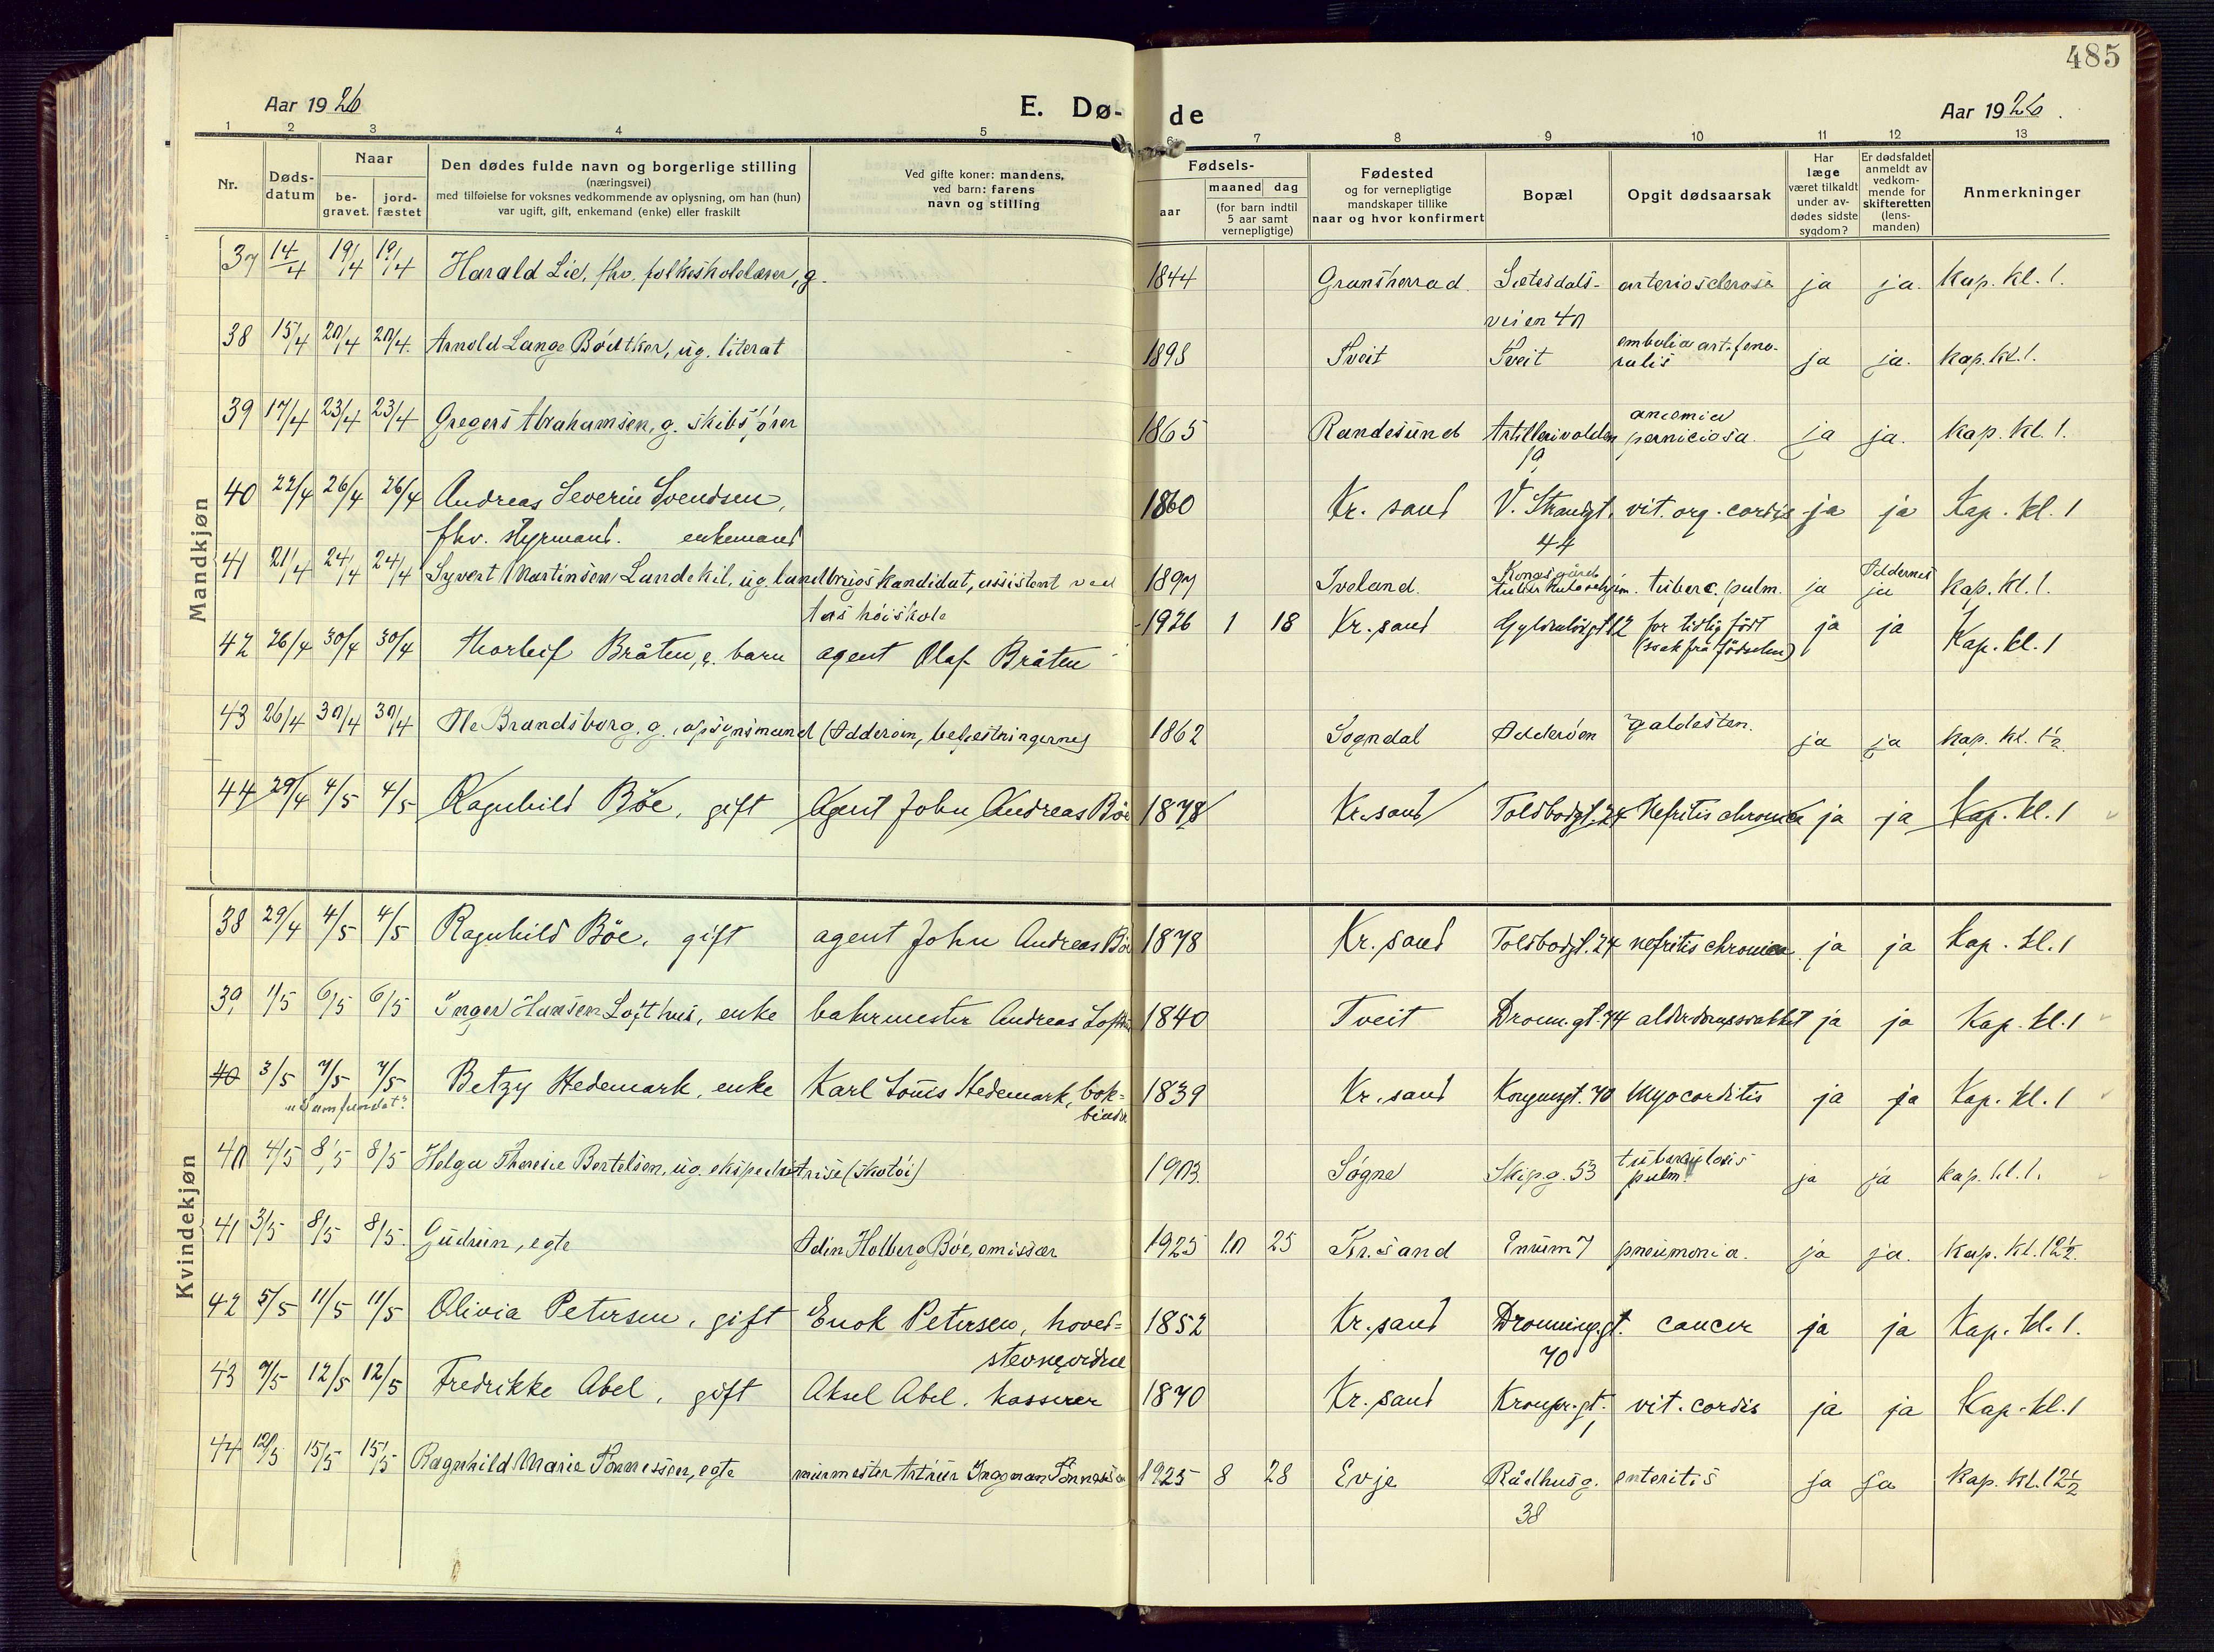 485
Aar 1926 E. Dø- de Aar 1926.
1 2 3 4 5 6 7 8 9 10 11 12 13
Nr. Døds-datum Naar be-gravet. jord-fæstet Den dødes fulde navn og borgerlige stilling (næringsvei) med tilføielse for voksnes vedkommende av oplysning, om han (hun) var ugift, gift, enkemand (enke) eller fraskilt Ved gifte koner: mandens, ved barn: farens navn og stilling Fødsels- aar maaned dag (for barn indtil 5 aar samt vernepligtige) Fødested og for vernepligtige mandskaper tillike naar og hvor konfirmert Bopæl Opgit dødsaarsak Har læge været tilkaldt under av-dødes sidste sygdom? Er dødsfaldet anmeldt av vedkom-mende for skifteretten (lens-manden) Anmerkninger
Mandkjøn
37 14/4 19/4 19/4 Harald Lie, fhv. folkeskolelærer, g. 1844 Gransherrad Setesdals- arteriosclerose ja ja. Kap. kl. 1.
veien 40
38 15/4 20/4 20/4. Arnold Lange Bödtker, ug. literat 1898 Tveit Tveit embolia art. femo-ralis ja ja. Kap. kl. 1.
39 17/4 23/4 23/4 Gregers Abrahamsen, g. skibsfører 1865 Randesund Artillerivolden 19 anæmia perniciosa. ja ja. Kap. kl. 1.
40 22/4 26/4 26/4 Andreas Severin Svendsen, 1860 Kr. sand V. Strandgt. vit. org. cordis ja ja Kap. kl. 1
fhv. styrmand. enkemand 44
41 21/4 24/4 24/4 Syvert Martinsen Landekil, ug. landbrugskandidat, assistent ved 1897 Iveland. Kongsgård tuberkulosehjem. tuberc. pulm. ja Oddernes ja Kap. kl. 1.
Ås høiskole
42 26/4 30/4 30/4 Thorleif Bråten, e. barn agent Olaf Bråten 1926 1 18 Kr. sand Gyldenløvgt 12 for tidlig født ja ja Kap. kl. 1
(svak fra fødselen)
43 26/4 30/4 30/4 Ole Brandsborg, g., opsynsmand (Odderøen, befestningerne) 1862 Sogndal Odderøen galdesten. ja ja Kap. kl. 1½
44 29/4 4/5 4/5 Ragnhild Böe, gift Agent John Andreas Böe 1878 Kr. sand Toldbodgt. 24 Nefritis chronica ja ja Kap. kl. 1
Kvindekjøn
38 29/4 4/5 4/5 Ragnhild Böe, gift agent John Andreas Böe 1878 Kr. sand Toldbodgt. 24 nefritis chronica ja ja Kap. kl. 1
39 1/5 6/5 6/5 Inger Hansen Lofthus, enke bakermester Andreas Lofthus 1840 Tveit Dronn.gt. 74 alderdomssvakhet ja ja Kap. kl. 1
40 3/5 7/5 7/5 Betzy Hedemark, enke Karl Louis Hedemark, bok- 1839 Kr. sand Kongensgt. 70 Myocarditis ja ja Kap. kl. 1
"Samfundet". binder
40 4/5 8/5 8/5 Helga Theresie Bertelsen, ug. ekspeditrise (skotøi) 1903. Søgne Skip.g. 53 tuberculosis pulm. ja ja Kap. kl. 1.
41 3/5 8/5 8/5. Gudrun, egte Odin Holberg Bøe, emissær 1925 10 25 Kr. sand Enrum 7 pneumonia. ja ja. Kap. kl. 12½.
42 5/5 11/5 11/5 Olivia Petersen, gift Enok Petersen, hoved- 1852 Kr. sand Dronning.gt. cancer ja ja Kap. kl. 1.
70
43 7/5 12/5 12/5 Fredrikke Abel, gift Aksel Abel, kasserer 1870 Kr. sand Kronpr.gt. 1 vit. cordis ja ja Kap. kl. 1
44 12/5 15/5 15/5 Ragnhild Marie Tönnessen, egte murmester Artur Ingeman Tönnessen 1925 8 28 Evje Rådhusg. enteritis ja ja Kap. kl. 12½
38